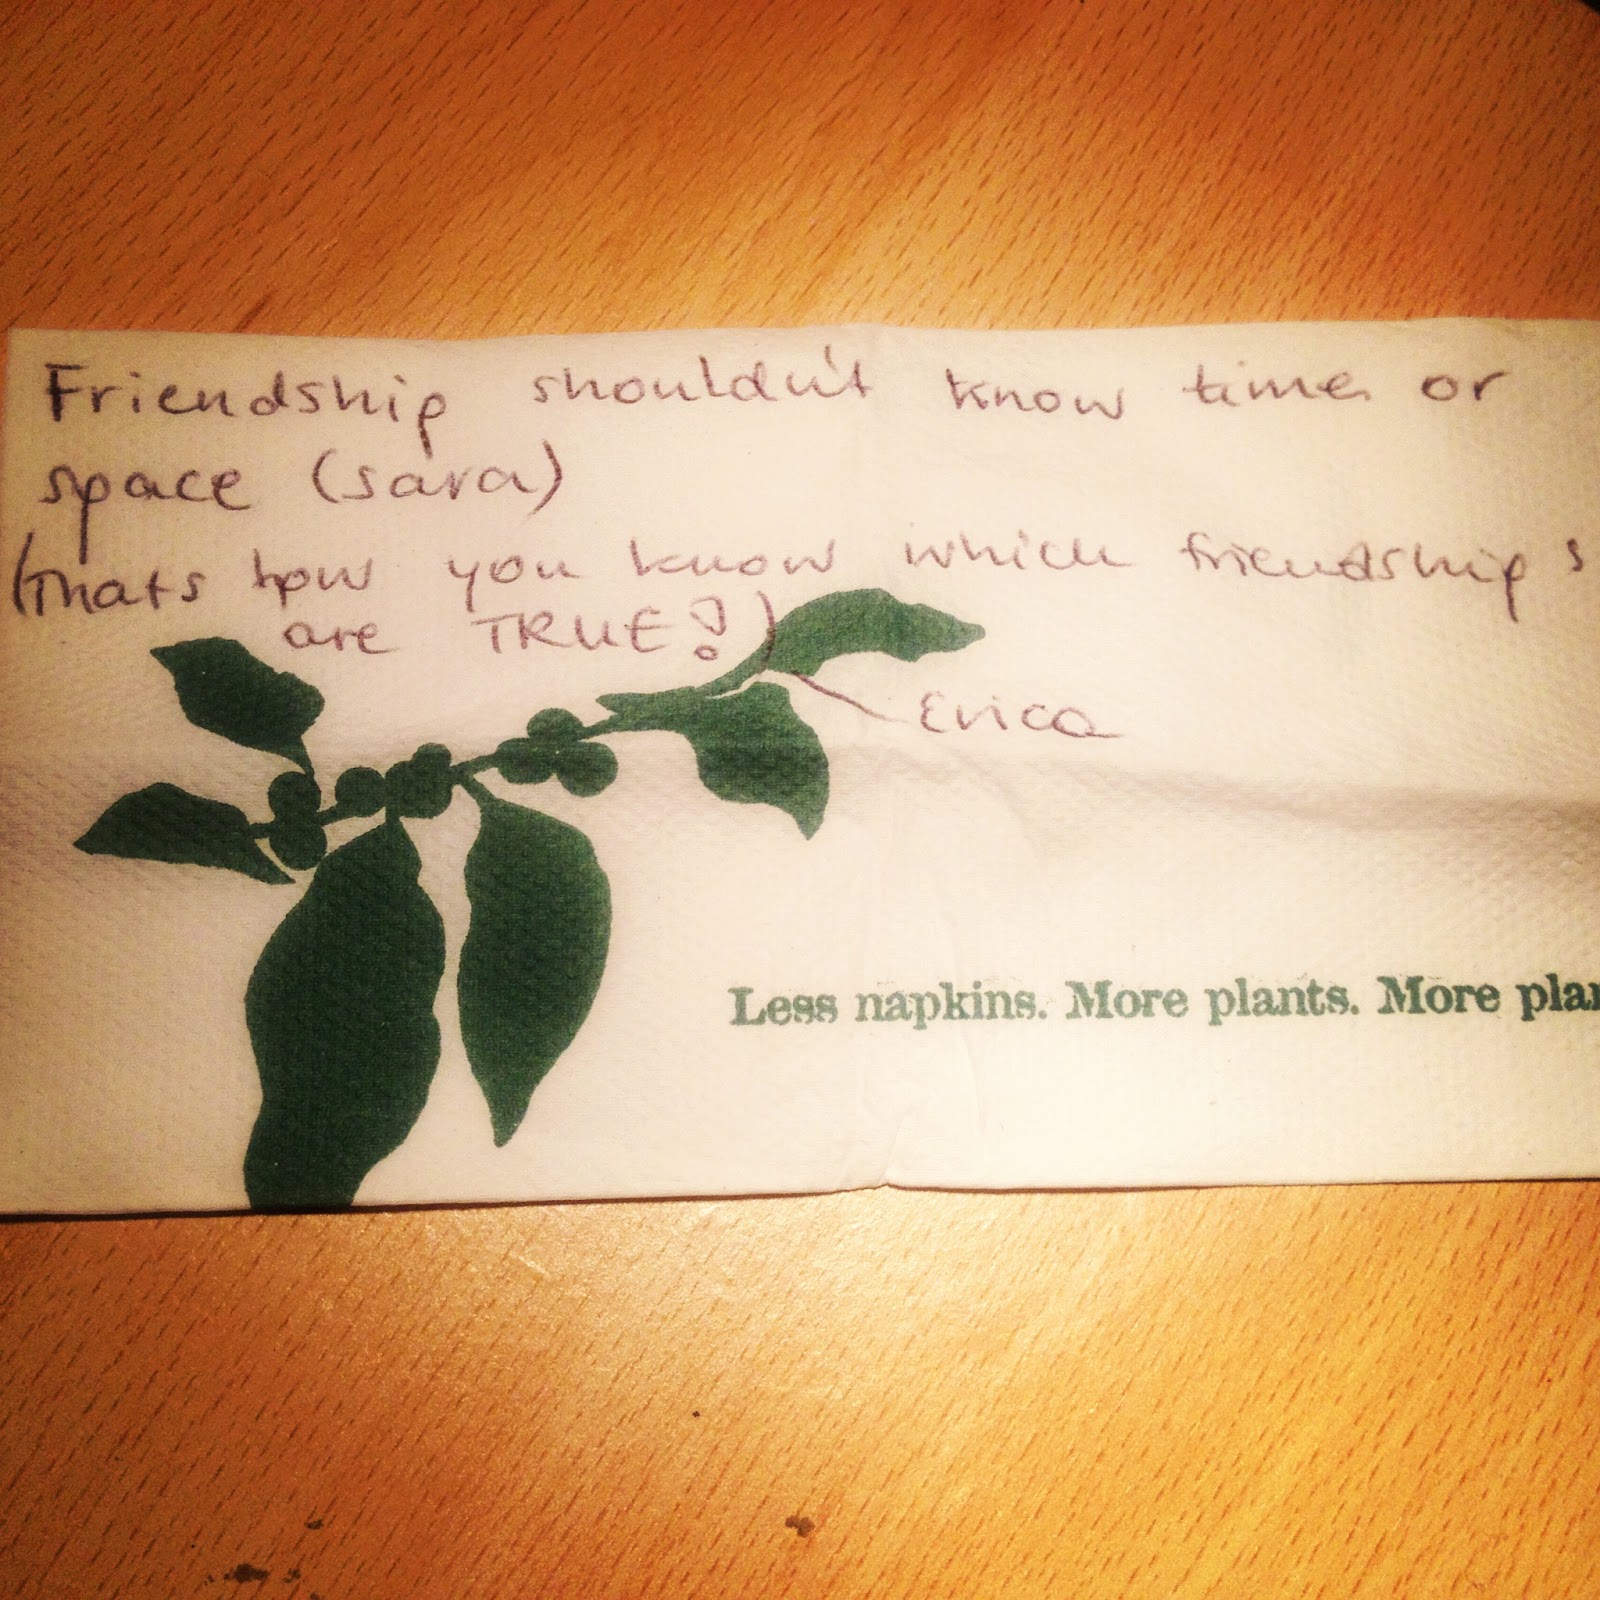 Friendship shouldn't know time or
space (sara)
(thats how you know which friendships
are TRUE!)
Erica
Less napkins. More plants. More plan